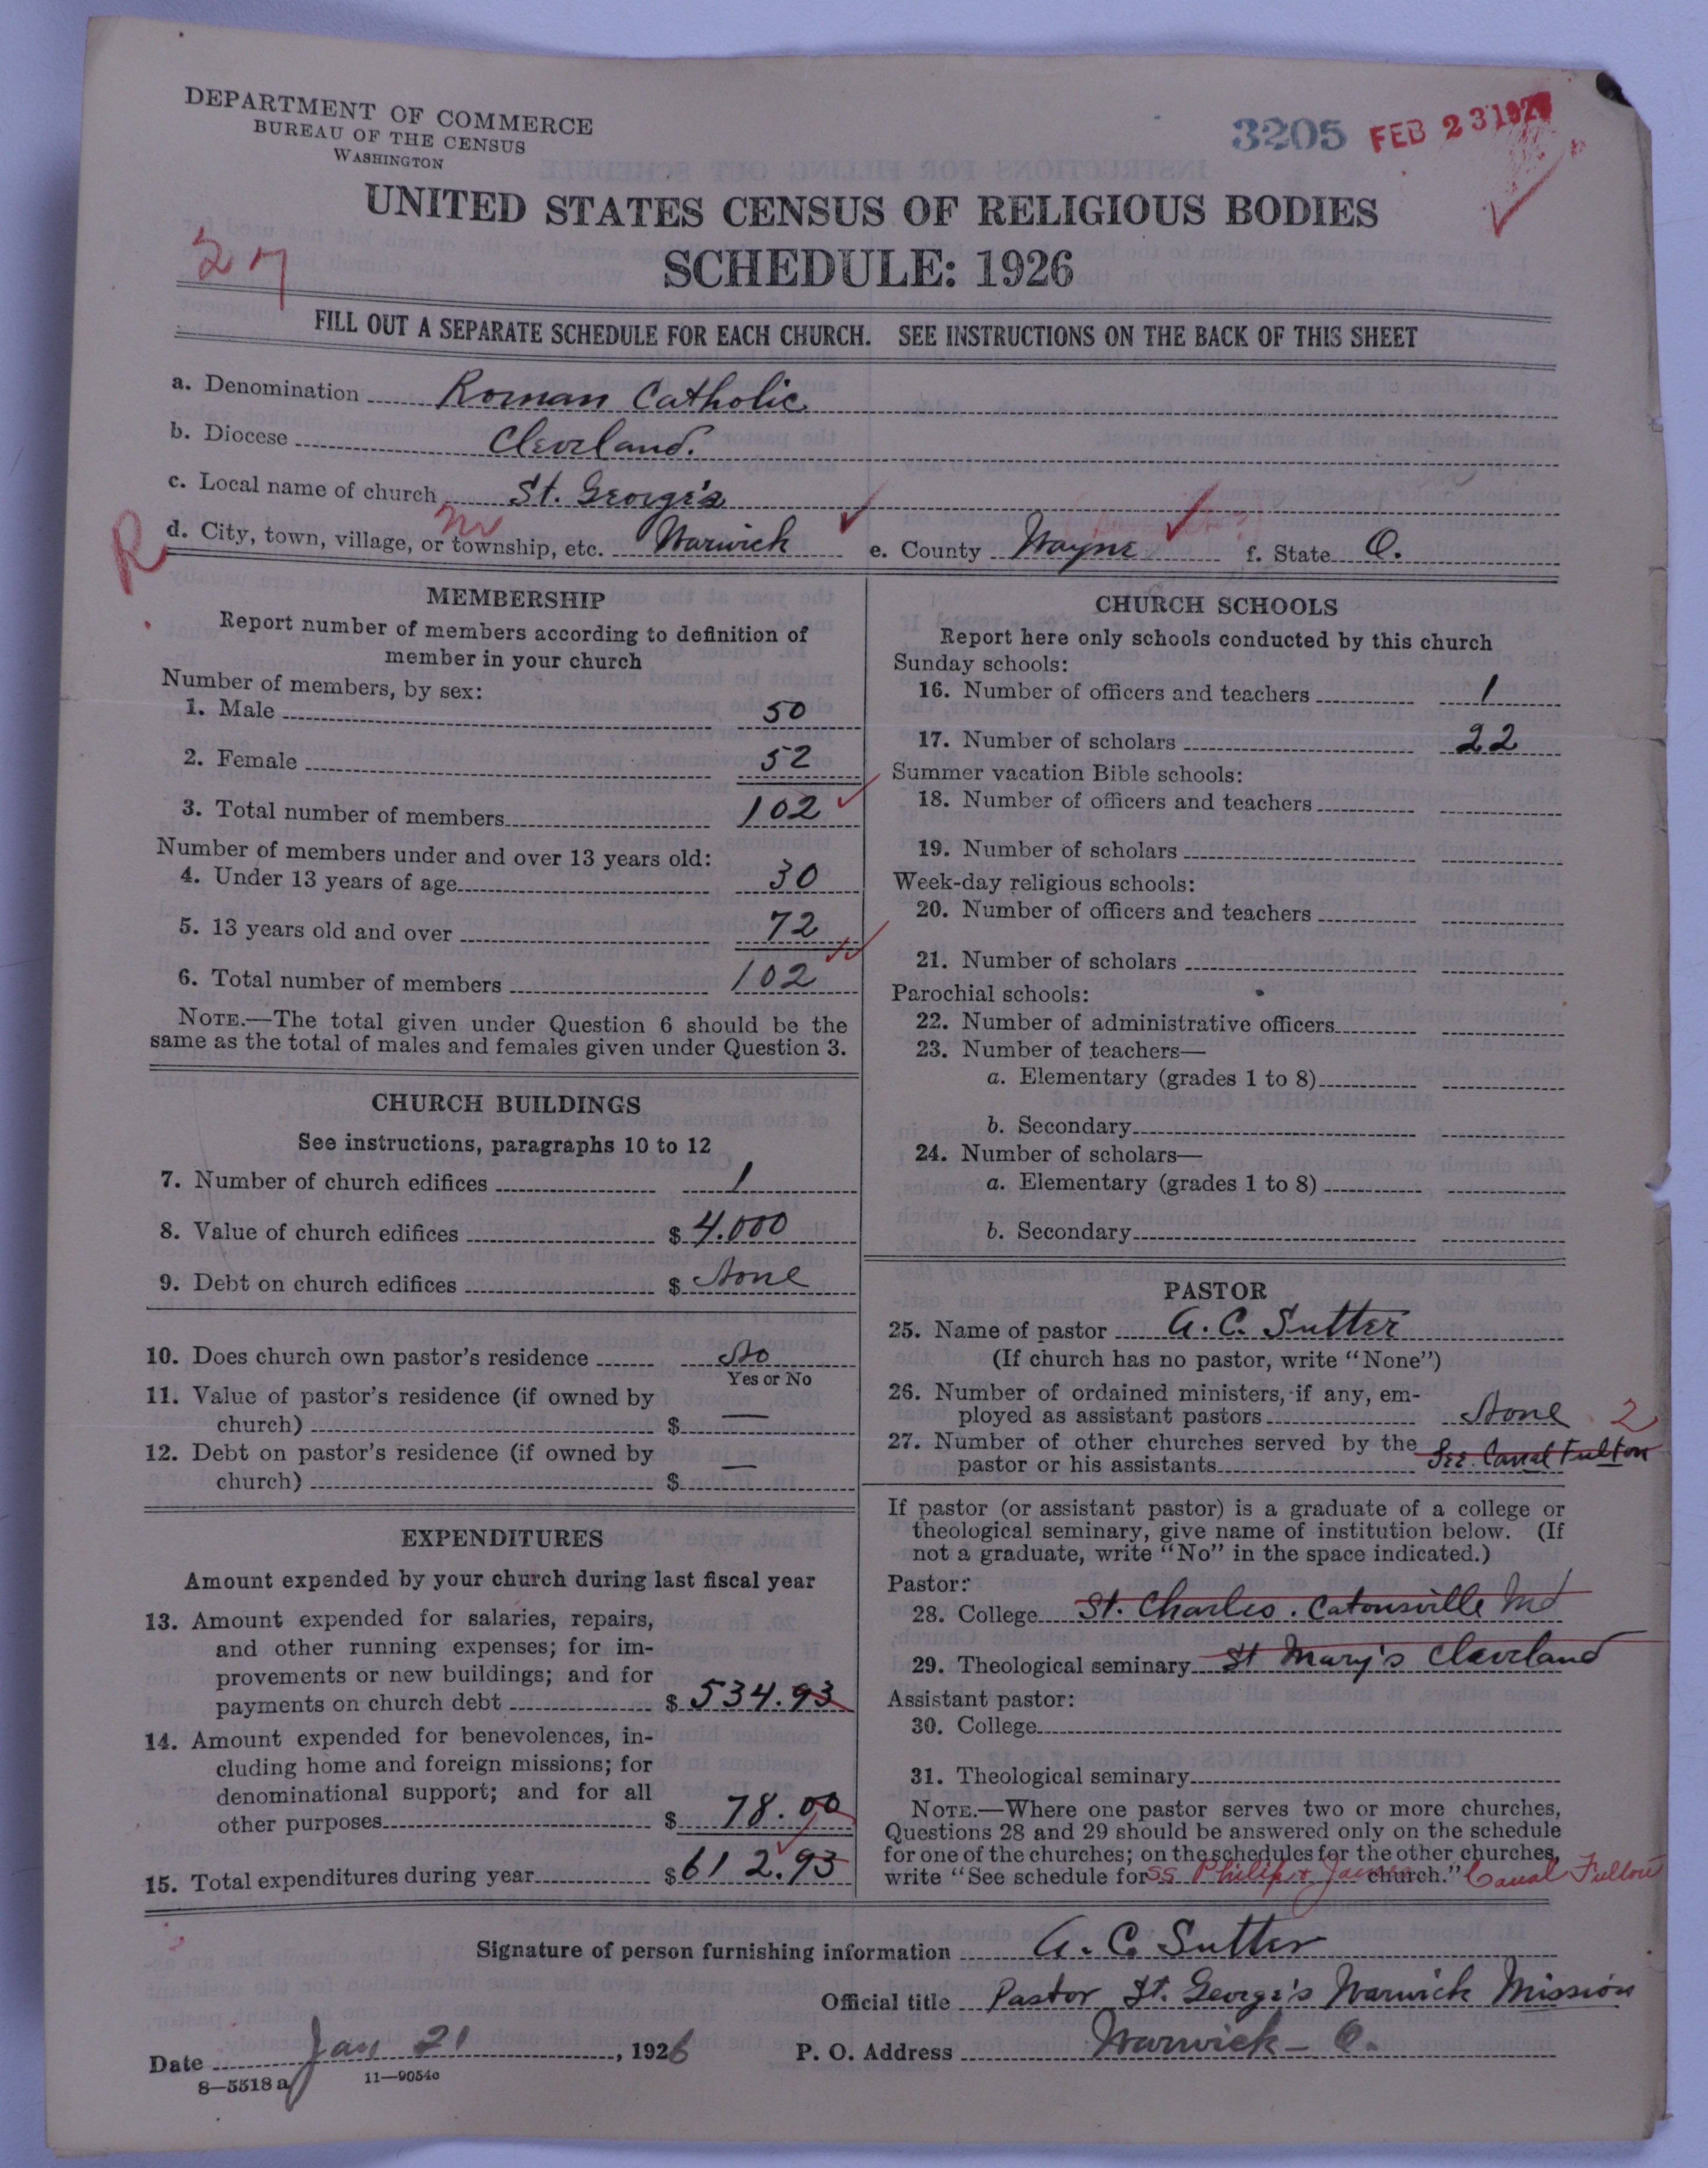 DEPARTMENT OF COMMERCE
BUREAU OF THE CENSUS
WASHINGTON
3205 FEB 23 1927
UNITED STATES CENSUS OF RELIGIOUS BODIES
SCHEDULE: 1926
FILL OUT A SEPARATE SCHEDULE FOR EACH CHURCH. SEE INSTRUCTIONS ON THE BACK OF THIS SHEET
a. Denomination Roman Catholic
b. Diocese Cleveland.
c. Local name of church St. George's
R
d. City, town, village, or township, etc. Warwick e. County Wayne f. State O.
MEMBERSHIP
Report number of members according to definition of
member in your church
Number of members, by sex:
1. Male 50
2. Female 52
3. Total number of members 102
Number of members under and over 13 years old:
4. Under 13 years of age 30
5. 13 years old and over 72
6. Total number of members 102
NOTE.—The total given under Question 6 should be the
same as the total of males and females given under Question 3.
CHURCH BUILDINGS
See instructions, paragraphs 10 to 12
7. Number of church edifices 1
8. Value of church edifices $ 4.000
9. Debt on church edifices $ None
10. Does church own pastor's residence No
Yes or No
11. Value of pastor's residence (if owned by
church) $ —
12. Debt on pastor's residence (if owned by
church) $ —
EXPENDITURES
Amount expended by your church during last fiscal year
13. Amount expended for salaries, repairs,
and other running expenses; for im-
provements or new buildings; and for
payments on church debt $ 534.93
14. Amount expended for benevolences, in-
cluding home and foreign missions; for
denominational support; and for all
other purposes $ 78.00
15. Total expenditures during year $ 612.93
CHURCH SCHOOLS
Report here only schools conducted by this church
Sunday schools:
16. Number of officers and teachers 1
17. Number of scholars 22
Summer vacation Bible schools:
18. Number of officers and teachers
19. Number of scholars
Week-day religious schools:
20. Number of officers and teachers
21. Number of scholars
Parochial schools:
22. Number of administrative officers
23. Number of teachers—
a. Elementary (grades 1 to 8)
b. Secondary
24. Number of scholars—
a. Elementary (grades 1 to 8)
b. Secondary
PASTOR
25. Name of pastor A. C. Sutter
(If church has no pastor, write "None")
26. Number of ordained ministers, if any, em-
ployed as assistant pastors None 2
27. Number of other churches served by the
pastor or his assistants See Canal Fulton
If pastor (or assistant pastor) is a graduate of a college or
theological seminary, give name of institution below. (If
not a graduate, write "No" in the space indicated.)
Pastor:
28. College St. Charles. Catonsville Md
29. Theological seminary St Mary's Cleveland
Assistant pastor:
30. College
31. Theological seminary
NOTE.—Where one pastor serves two or more churches,
Questions 28 and 29 should be answered only on the schedule
for one of the churches; on the schedules for the other churches,
write "See schedule for SS Philip & James church." Canal Fulton
Signature of person furnishing information A. C. Sutter
Official title Pastor St. George's Warwick Mission
Date Jan 21, 1926 P. O. Address Warwick - O.
8—5518 a 11—9054c